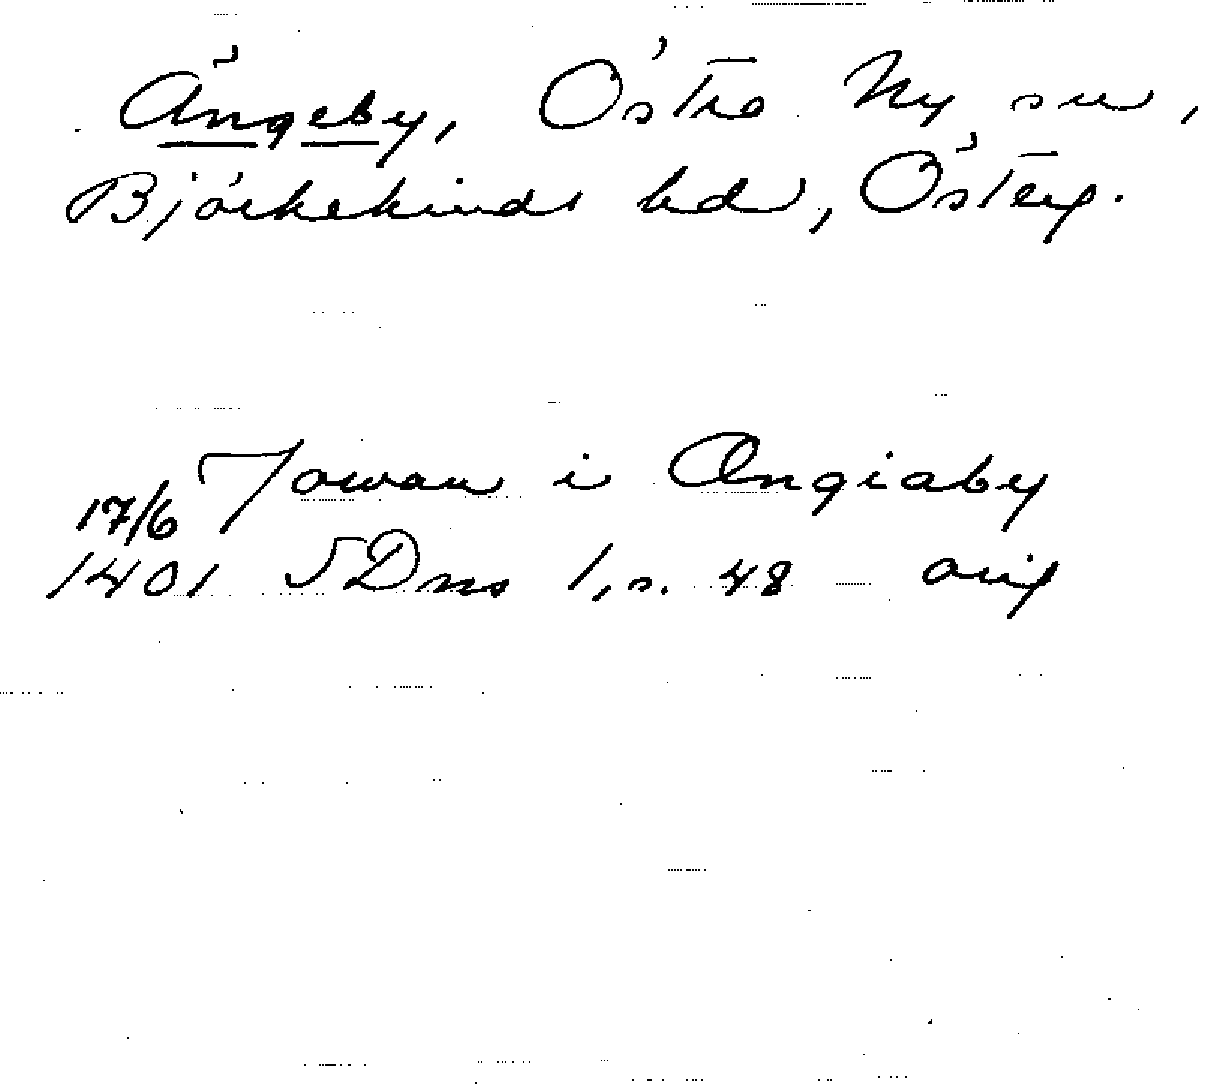 Ängeby, Östra Ny sn,
Björkekinds hd, Österg.
Jowan i Ängiaby
17/6
1401 SDns 1, s. 48 orig